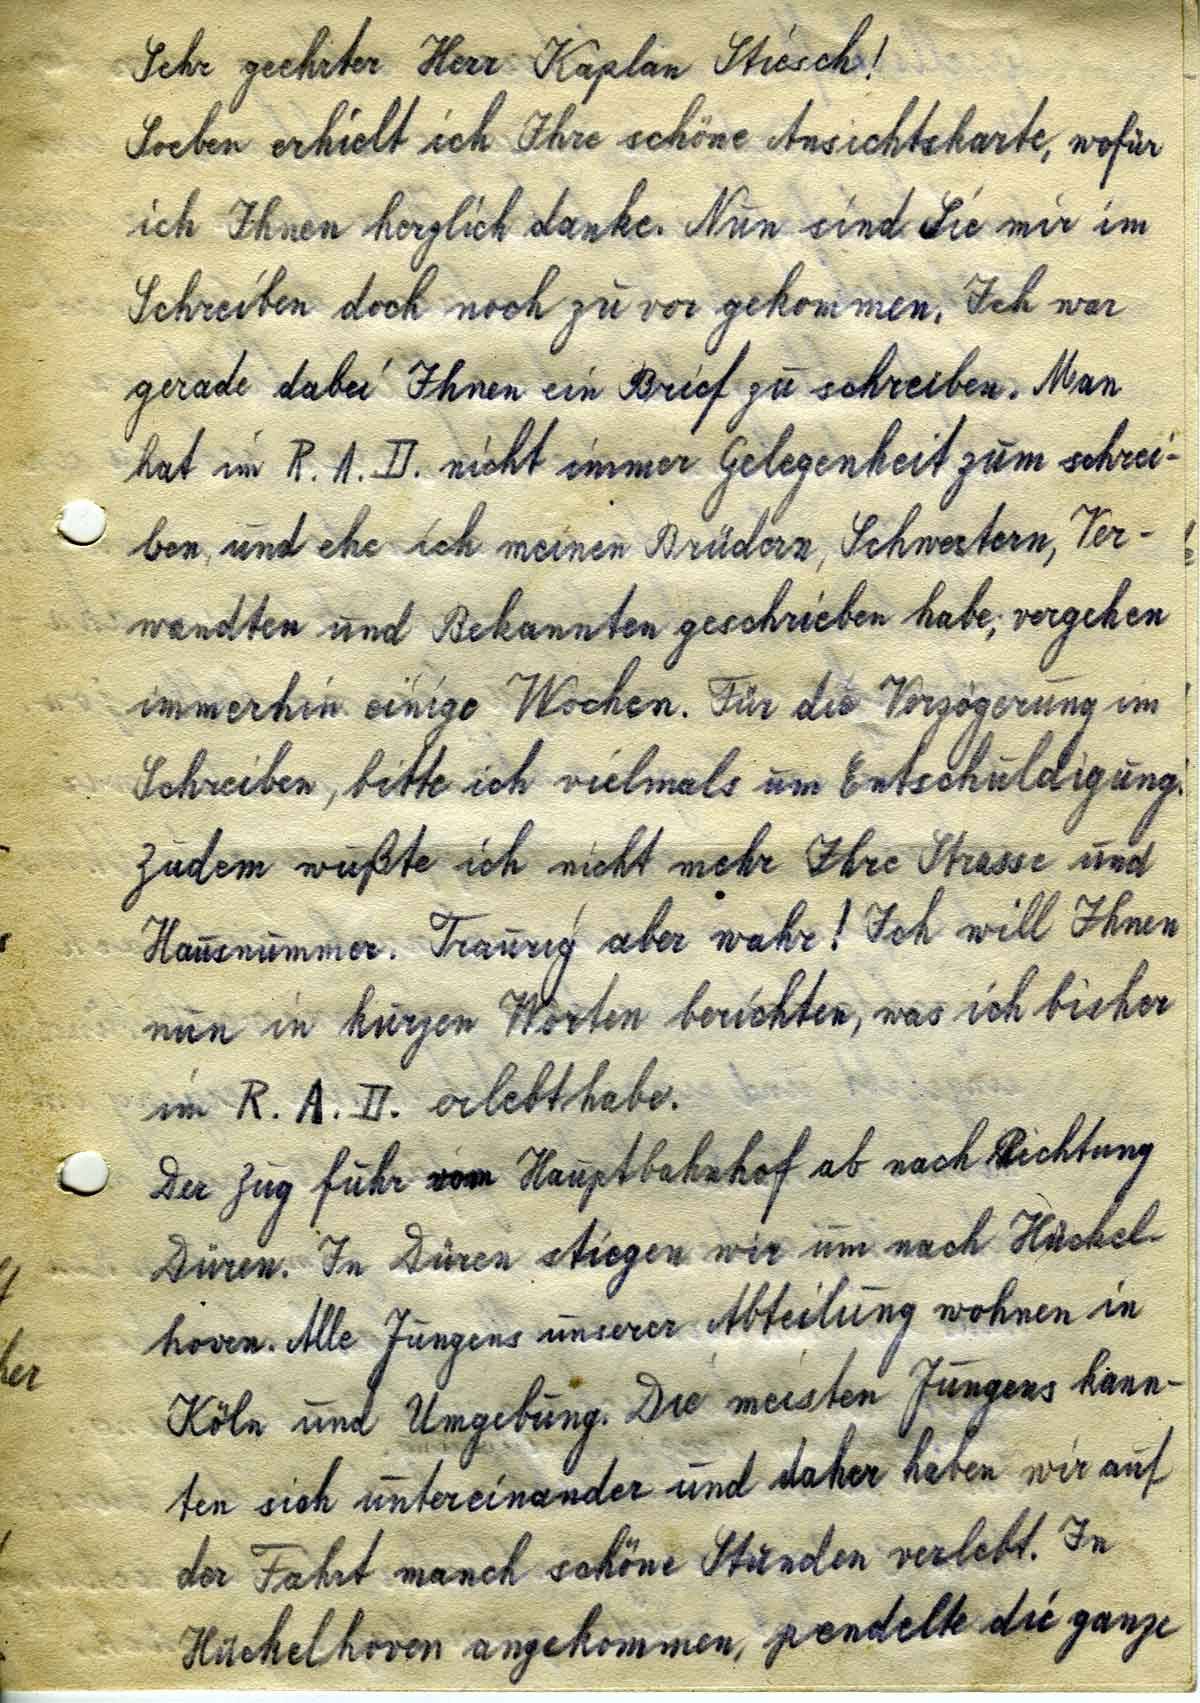 Sehr geehrter Herr Kaplan Stiesch!
Soeben erhielt ich Ihre schöne Ansichtskarte, wofür
ich Ihnen herzlich danke. Nun sind Sie mir im
Schreiben doch noch zu vor gekommen. Ich war
gerade dabei Ihnen ein Brief zu schreiben. Man
hat im R. A. D. nicht immer Gelegenheit zum schrei-
ben, und ehe ich meinen Brüdern, Schwestern, Ver-
wandten und Bekannten geschrieben habe, vergehen
immerhin einige Wochen. Für die Verzögerung im
Schreiben, bitte ich vielmals um Entschuldigung.
Zudem wußte ich nicht mehr Ihre Strasse und
Hausnummer. Traurig aber wahr! Ich will Ihnen
nun in kurzen Worten berichten, was ich bisher
im R. A. D. erlebt habe.
Der Zug fuhr vom Hauptbahnhof ab nach Richtung
Düren. In Düren stiegen wir um nach Hückel-
hoven. Alle Jungens unserer Abteilung wohnen in
Köln und Umgebung. Die meisten Jungens kann-
ten sich untereinander und daher haben wir auf
der Fahrt manch schöne Stunden verlebt. In
Hückelhoven angekommen, pendelte die ganze